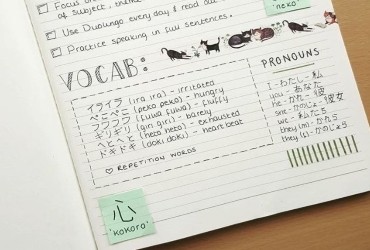 Focus
of subject,
Use Duolingo every day & read out
Practice speaking in full sentences.
"neko"
VOCAB:
イライラ (ira ira) - irritated
ぺこぺこ (peko peko) - hungry
フワフワ (fuwa fuwa) - fluffy
ギリギリ (giri giri) - barely
へとへと (heto heto) - exhausted
ドキドキ (doki doki) - heart beat
♡ REPETITION WORDS
PRONOUNS
I - わたし - 私
you - あなた
he - かれ - 彼
she - かのじょ - 彼女
we - 私たち
they (m) - かれら
they (f) - かのじょら
心
'kokoro'